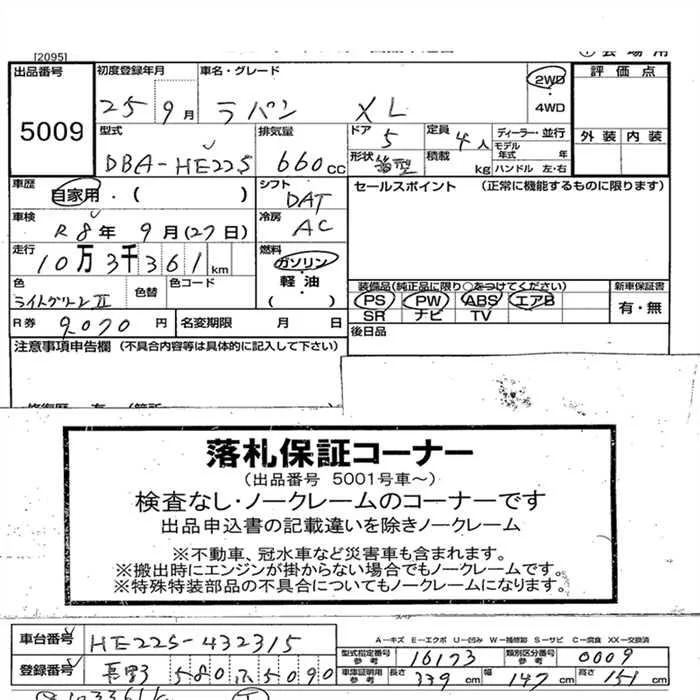 [2095]
出品番号 初度登録年月 車名・グレード 2WD 評価点
5009 25 9月 ラパン XL ・ 4WD
型式 排気量 ドア 定員 ディーラー・並行 外装 内装
DBA-HE22S 660CC 5 4人 モデル年式 年
形状 箱型 積載 kg ハンドル 左・右
車歴 自家用・( ) シフト DAT セールスポイント (正常に機能するものに限ります)
車検 R8年9月(27日) 冷房 AC
走行 10万3千361km 燃料 ガソリン・軽油( )
色 ライトグリーンII 色替 色コード 装備品(純正品に限り○をつけてください) 新車保証書
PS PW ABS エアB 有・無
R券 9070円 名変期限 月 日 SR ナビ TV
注意事項申告欄 (不具合内容等は具体的に記入して下さい) 後日品
落札保証コーナー
(出品番号 5001号車～)
検査なし・ノークレームのコーナーです
出品申込書の記載違いを除きノークレーム
※不動車、冠水車など災害車も含まれます。
※搬出時にエンジンが掛からない場合でもノークレームです。
※特殊特装部品の不具合についてもノークレームになります。
A－キズ E－エクボ U－凹み W－補修跡 S－サビ C－腐食 XX－交換済
車台番号 HE22S-432315 型式指定番号 参考 16173 類別区分番号 参考 0009
登録番号 長野 580 5090 車庫証明用 参考 長さ 339cm 幅 147cm 高さ 151cm